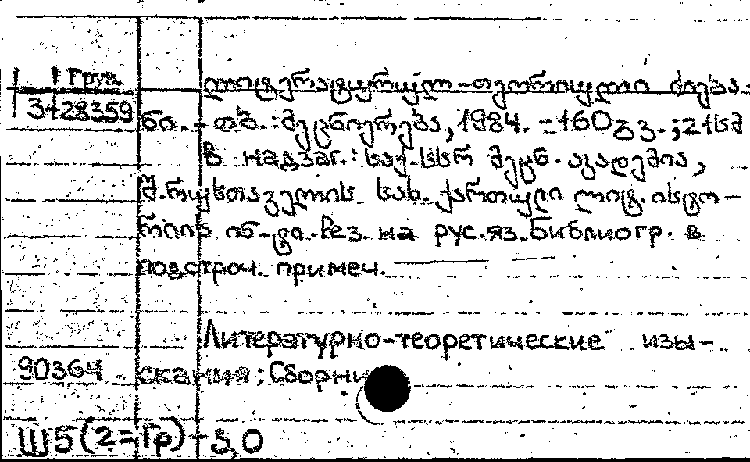 Груз.
ლიტერატურულ-თეორიული ძიება-
3428359 ნი. - თბ.: მეცნიერება, 1984. - 160 გვ.; 21 სმ
В надзаг.: საქ. სსრ მეცნ. აკადემია,
შ. რუსთაველის სახ. ქართული ლიტ. ისტო-
რიის ინ-ტი. Рез. на рус. яз. Библиогр. в
подстроч. примеч.
Литературно-теоретические изы-
90364 скания: Сборни
Ш5(2=Гр)